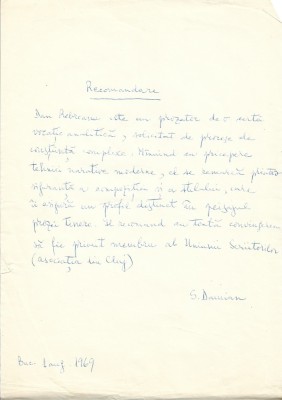 Recomandare
Dan Rebreanu este un prozator de o certă
vocație analitică, solicitat de procese de
conștiință complexe. Stăpînind cu pricepere
tehnici narrative moderne, el se remarcă printr-o
siguranță a compoziției și a stilului, care
îi asigură un profil distinct în peisajul
prozei tinere. Îl recomand cu toată convingerea
să fie primit membru al Uniunii Scriitorilor
(asociația din Cluj)
1969